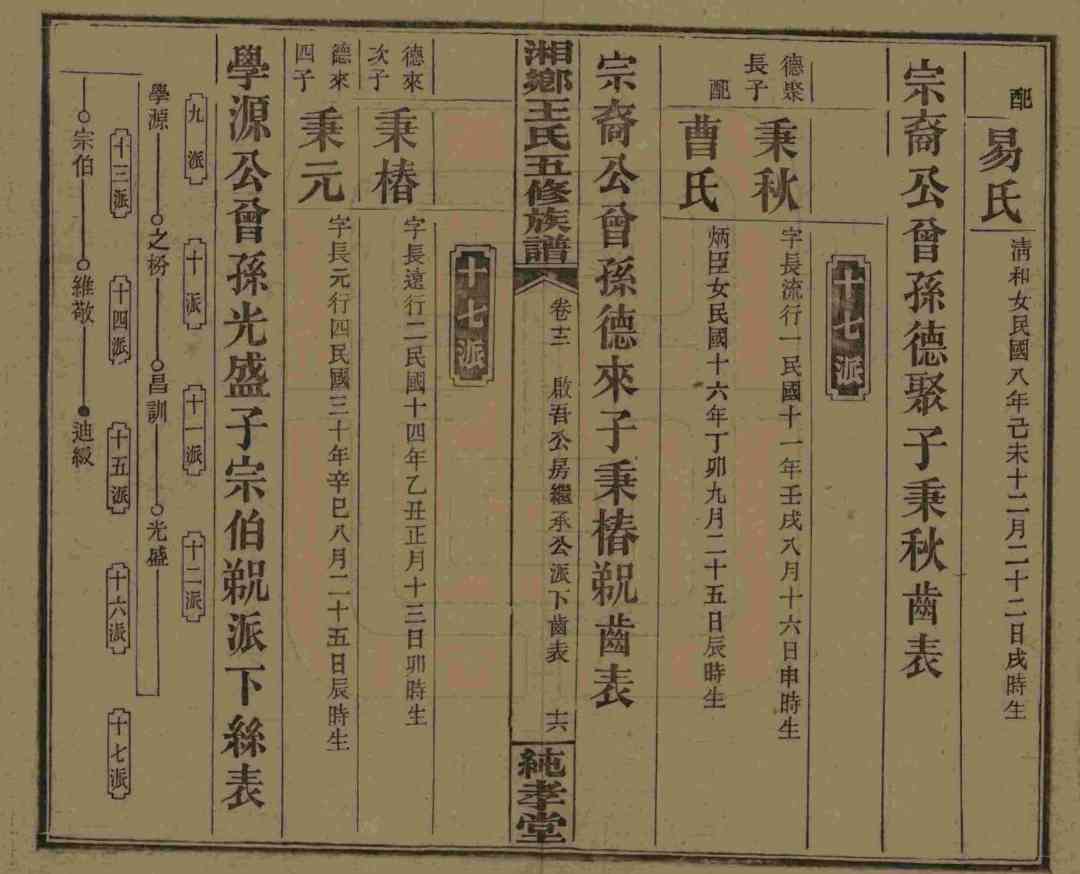 配
易氏
清和女民國八年己未十二月二十二日戌時生
宗裔公曾孫德聚子秉秋齒表
十七派
德聚
長子
秉秋
字長流行一民國十一年壬戌八月十六日申時生
配
曹氏
炳臣女民國十六年丁卯九月二十五日辰時生
宗裔公曾孫德來子秉椿
齒表
湘鄉王氏五修族譜
卷十三
啟吾公房繼承公派下齒表
十六
純孝堂
十七派
德來
次子
秉椿
字長遠行二民國十四年乙丑正月十三日卯時生
德來
四子
秉元
字長元行四民國三十年辛巳八月二十五日辰時生
學源公曾孫光盛子宗伯
派下絲表
九派
十派
十一派
十二派
學源
之枌
昌訓
光盛
十三派
十四派
十五派
十六派
十七派
宗伯
維敬
迪綴